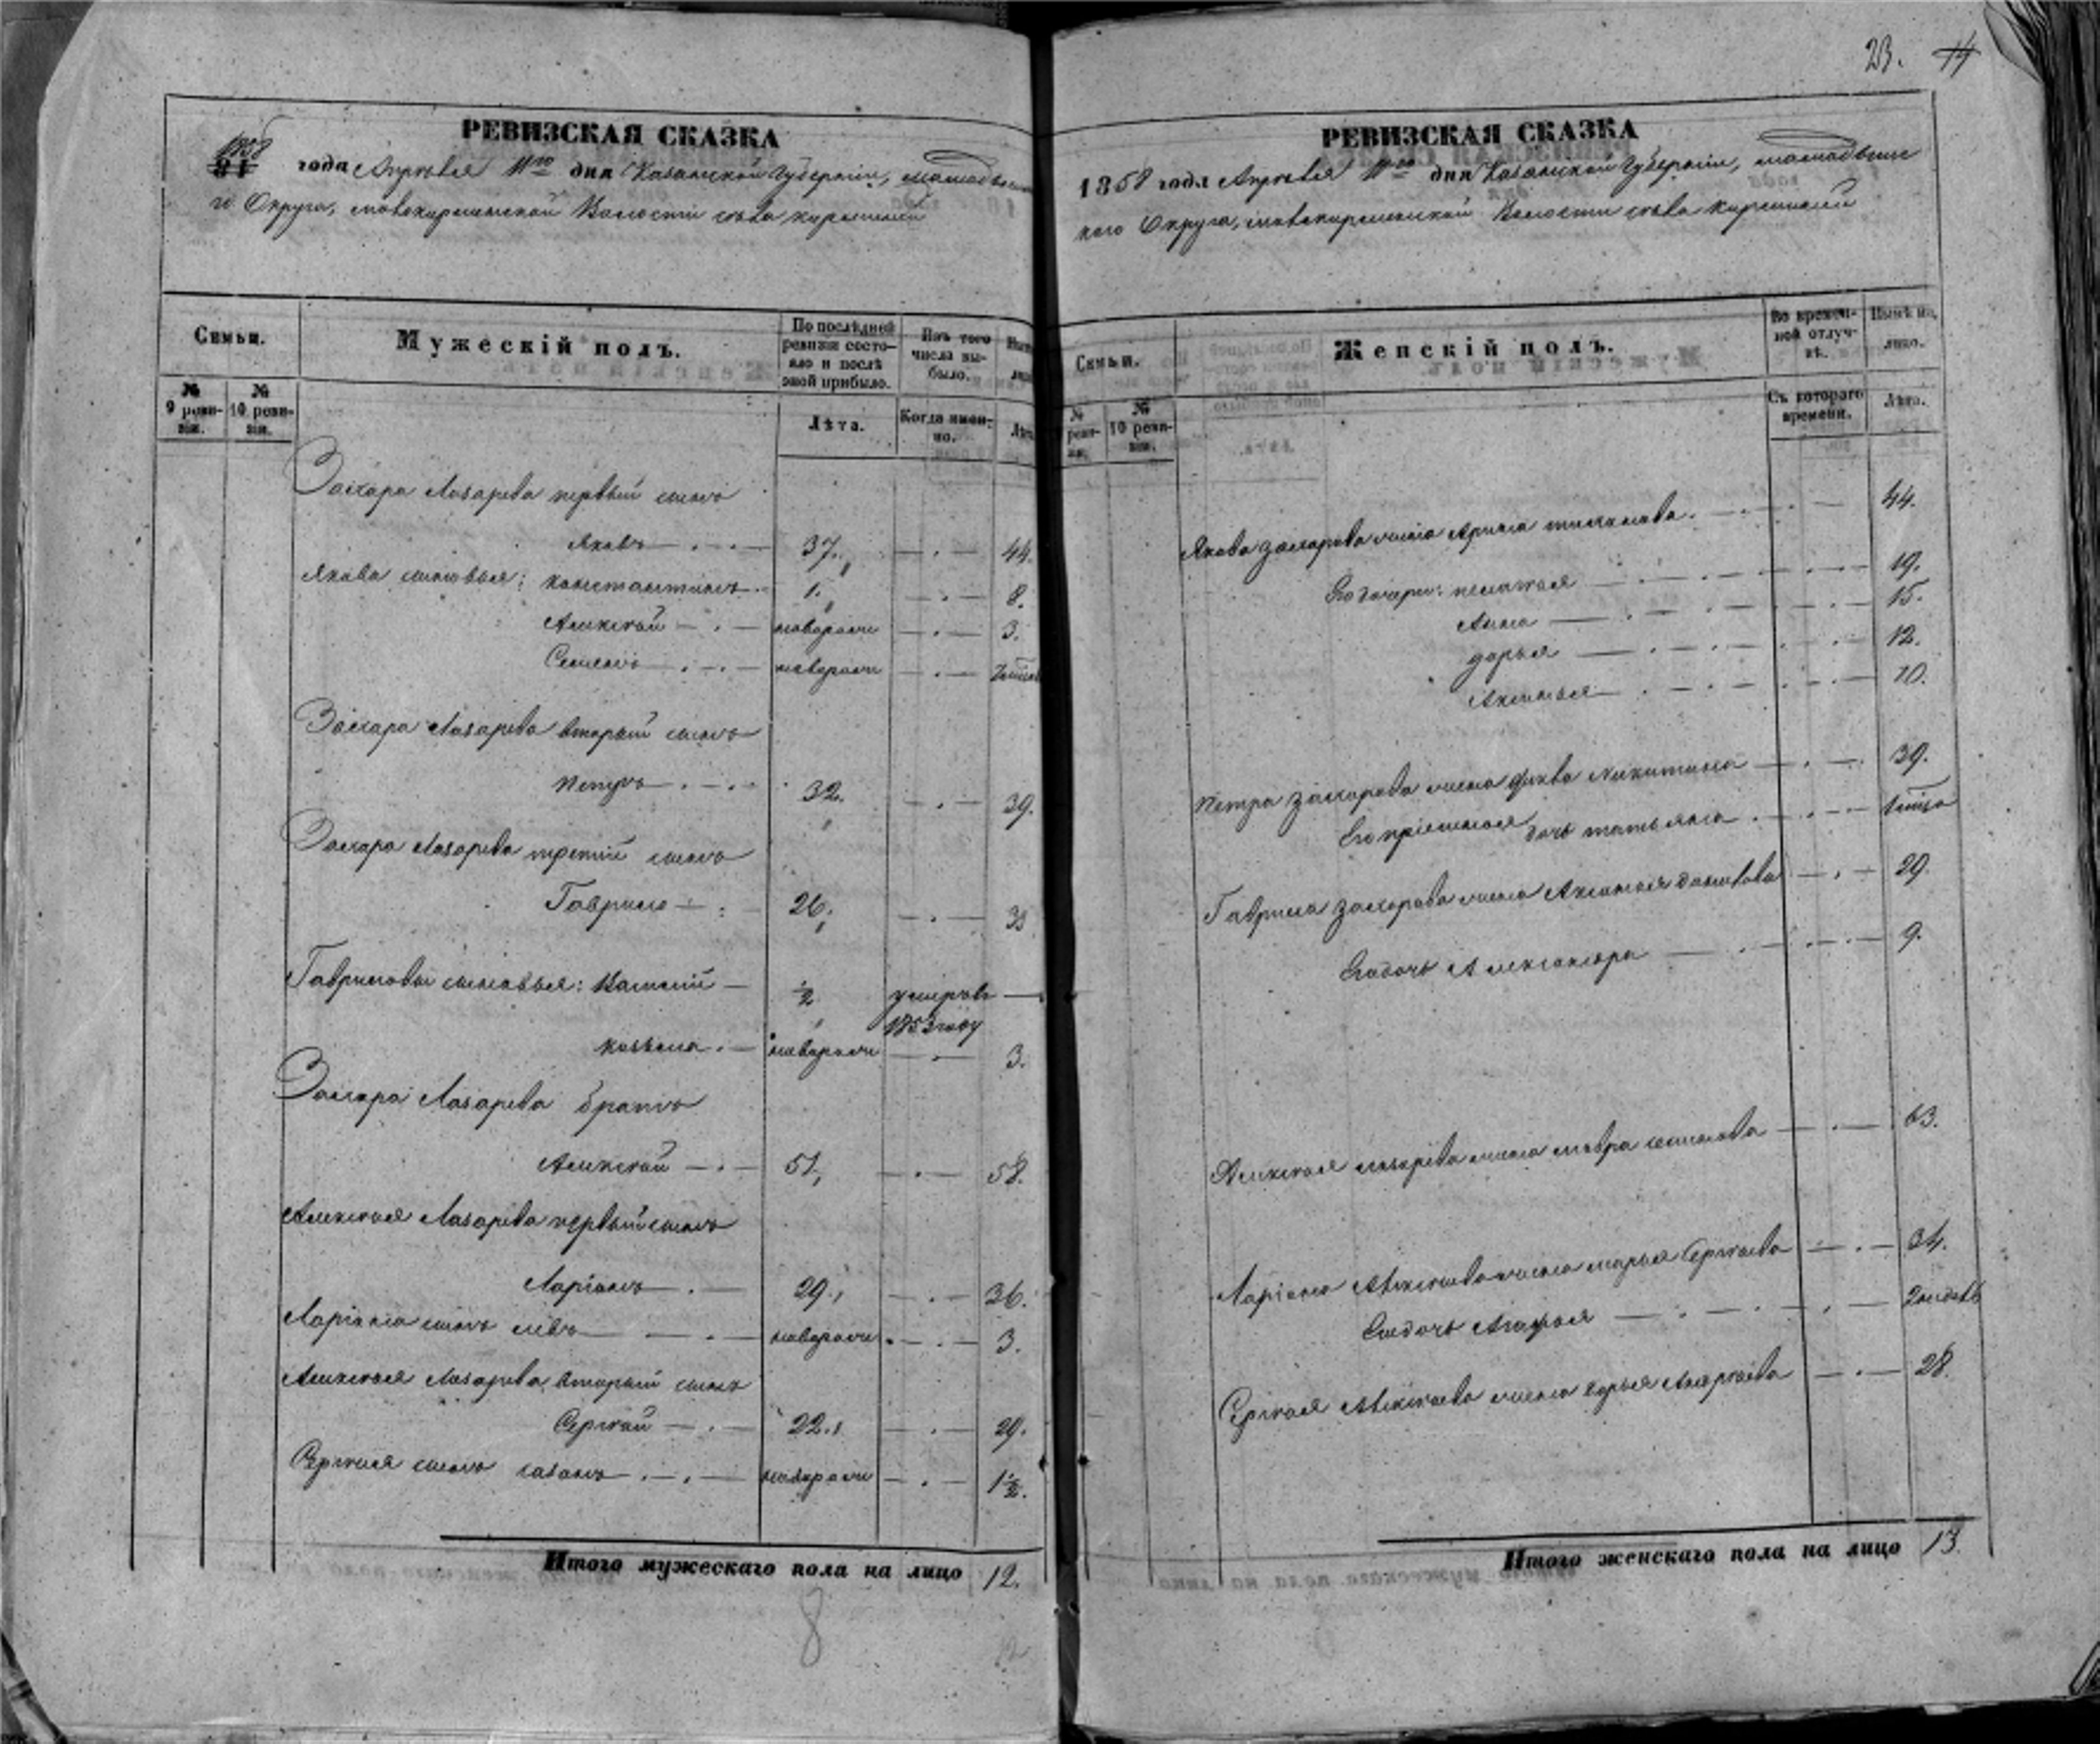 РЕВИЗСКАЯ СКАЗКА
1858 года Апрѣля 11го дня Казанской Губерніи, мамадышска
го Округа, Волости села
Семьи.
Мужескій полъ.
По послѣдней ревизіи состояло и послѣ оной прибыло.
Изъ того числа выбыло.
№ 9 ревизіи.
№ 10 ревизіи.
Лѣта.
Когда именно.
Захара Лазарева первый сынъ
Яковъ 37. 44.
Якова сыновья: константинъ 1. 8.
Алексѣй новорожи 3.
Семенъ новорожи
Захара Лазарева вторый сынъ
петръ 32. 39.
Захара Лазарева третій сынъ
Гаврило 26. 33
Гавриловы сыновья: Василій ½ умеръ въ
1853 году
козьма новорожи 3.
Захара Лазарева братъ
Алексѣй 51. 58.
Алексѣя Лазарева первый сынъ
Ларіонъ 29. 36.
Ларіона сынъ левъ новорожи 3.
Алексѣя Лазарева вторый сынъ
Сергѣй 22. 29.
Сергѣя сынъ новорожи 1½.
Итого мужескаго пола на лицо 12.
8
23. 14
РЕВИЗСКАЯ СКАЗКА
1858 года Апрѣля 11го дня Казанской Губерніи, мамадышс
каго Округа, Волости села
Семьи.
Женскій полъ.
Во временной отлучкѣ.
Нынѣ на лицо.
№ реви-зіи.
№ 10 ревизіи.
Съ котораго времени.
Лѣта.
Якова захарова жена Арина 44.
Его дочери: пелагея 19.
Анна 15.
дарья 12.
Аксинья 10.
петра захарова жена фекла Никитина 39.
Его дочь татьяна
Гаврила захарова жена Аксинья 29.
Его дочь Александра 9.
Алексѣя лазарева жена мавра семенова 63.
Ларіона Алексѣева жена марья Сергѣева 34.
Его дочь Агафья
Сергѣя Алексѣева жена дарья Андрѣева 28.
Итого женскаго пола на лицо 13.